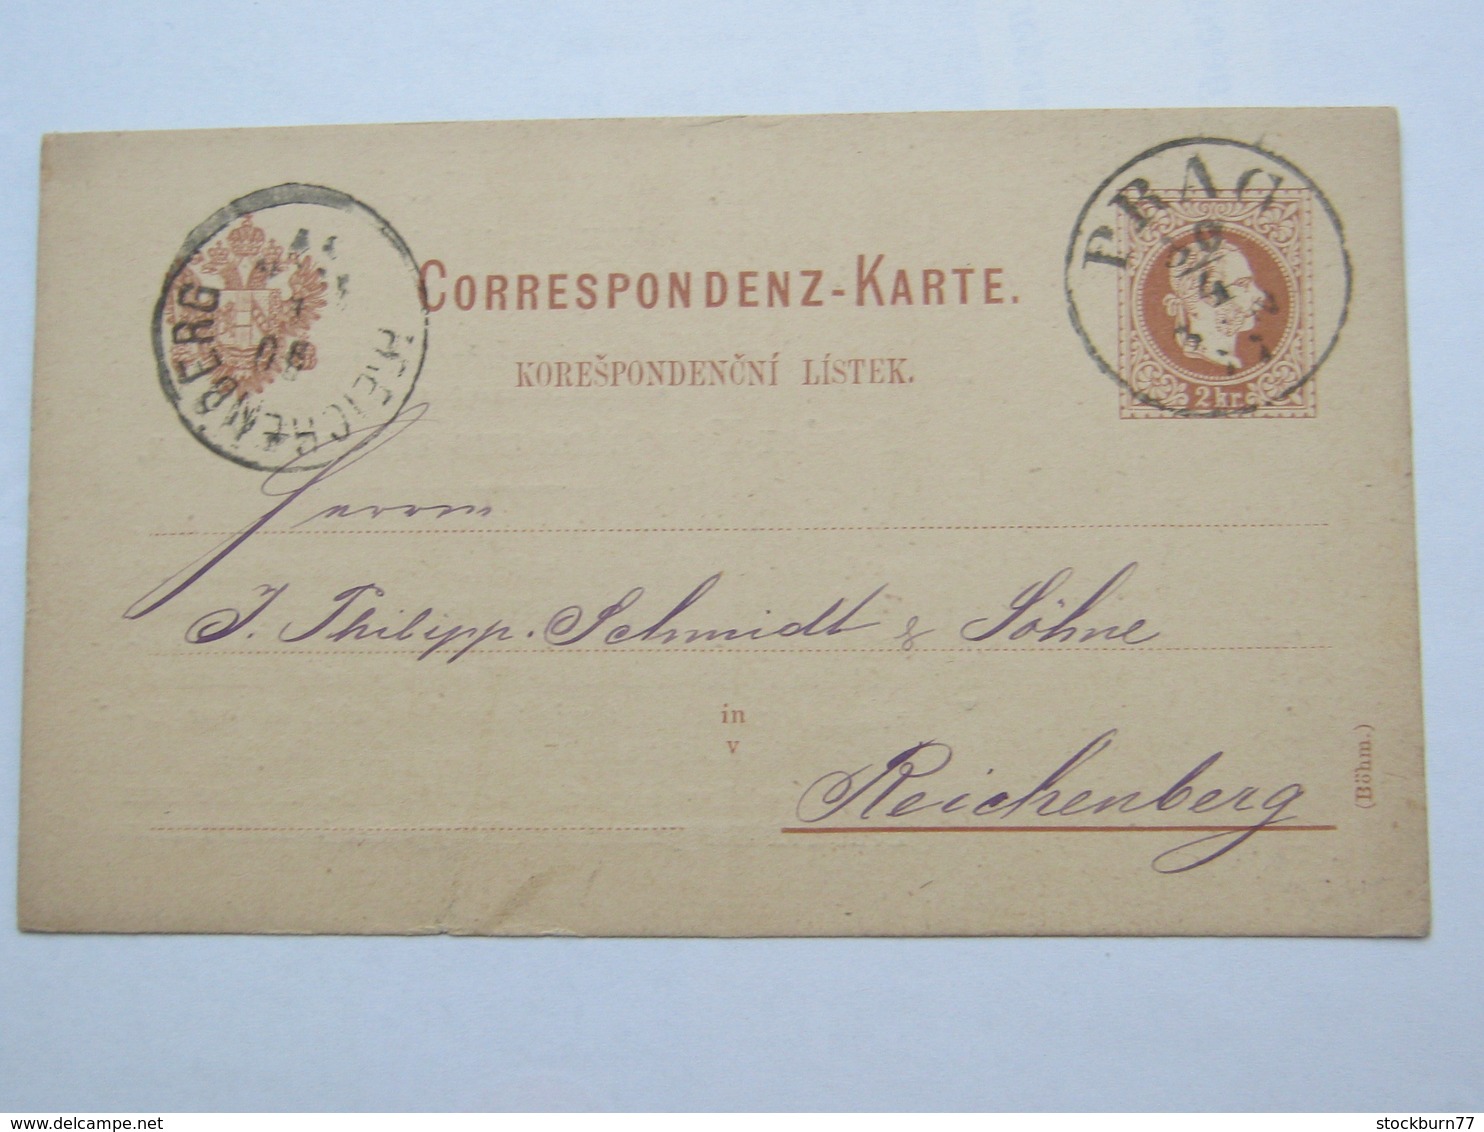 PRAG
30/4
CORRESPONDENZ-KARTE.
KOREŠPONDENČNÍ LÍSTEK.
2 kr.
REICHENBERG
Herrn
J. Philipp Schmidt & Söhne
in
v
Reichenberg
(Böhm.)
www.delcampe.net
stockburn77